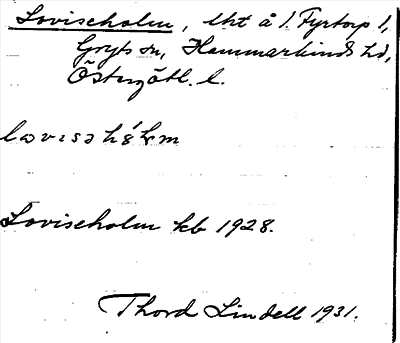 Loviseholm, lht å 1 Fyrtorp 1,
Gryts sn, Hammarkinds hd,
Östergötl. l.
Loviseholm kb 1928.
Thord Lindell 1931.